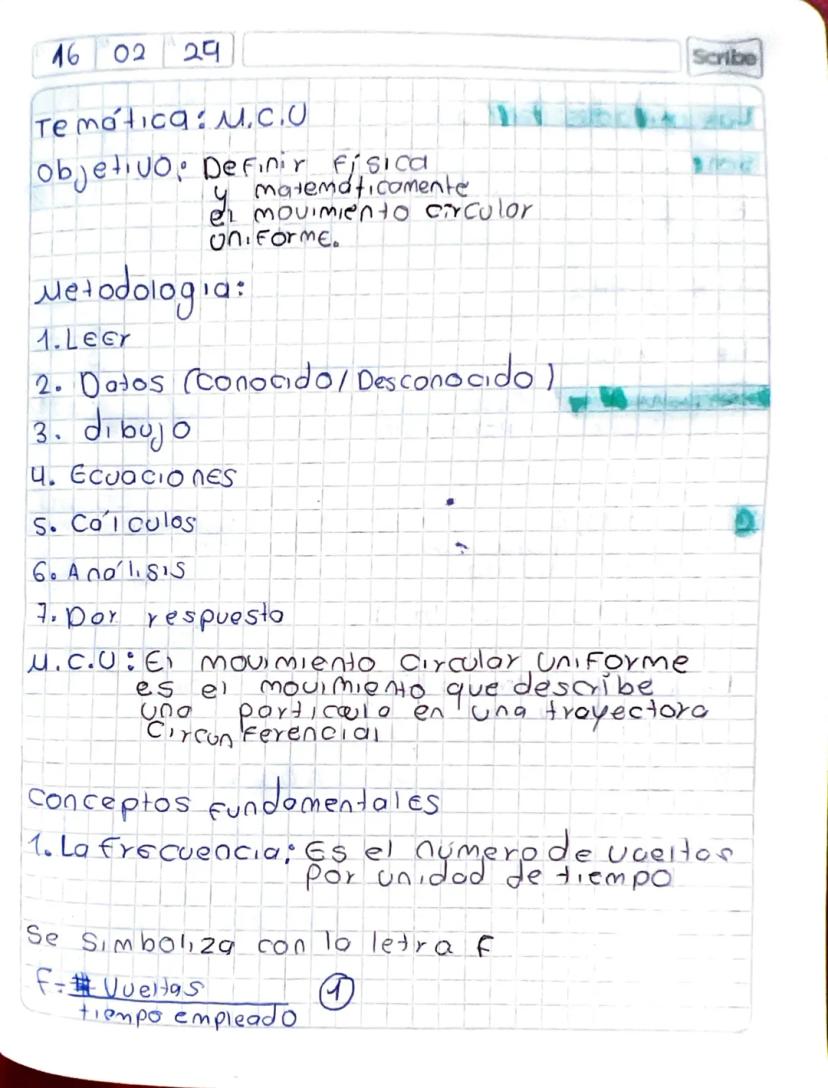 16 02 29
Scribe
Temática: M.C.U
Objetivo: Definir física
y matemáticamente
el movimiento circular
uniforme.
Metodologia:
1. Leer
2. Datos (conocido/Desconocido)
3. dibujo
4. Ecuaciones
5. Cálculos
6. Análisis
7. Dar respuesta
M.C.U: El movimiento circular uniforme
es el movimiento que describe
una partícula en una trayectora
Circunferencial
Conceptos fundamentales
1. La frecuencia: Es el número de vueltas
por unidad de tiempo
Se simboliza con la letra f
f = # Vueltas ①
tiempo empleado